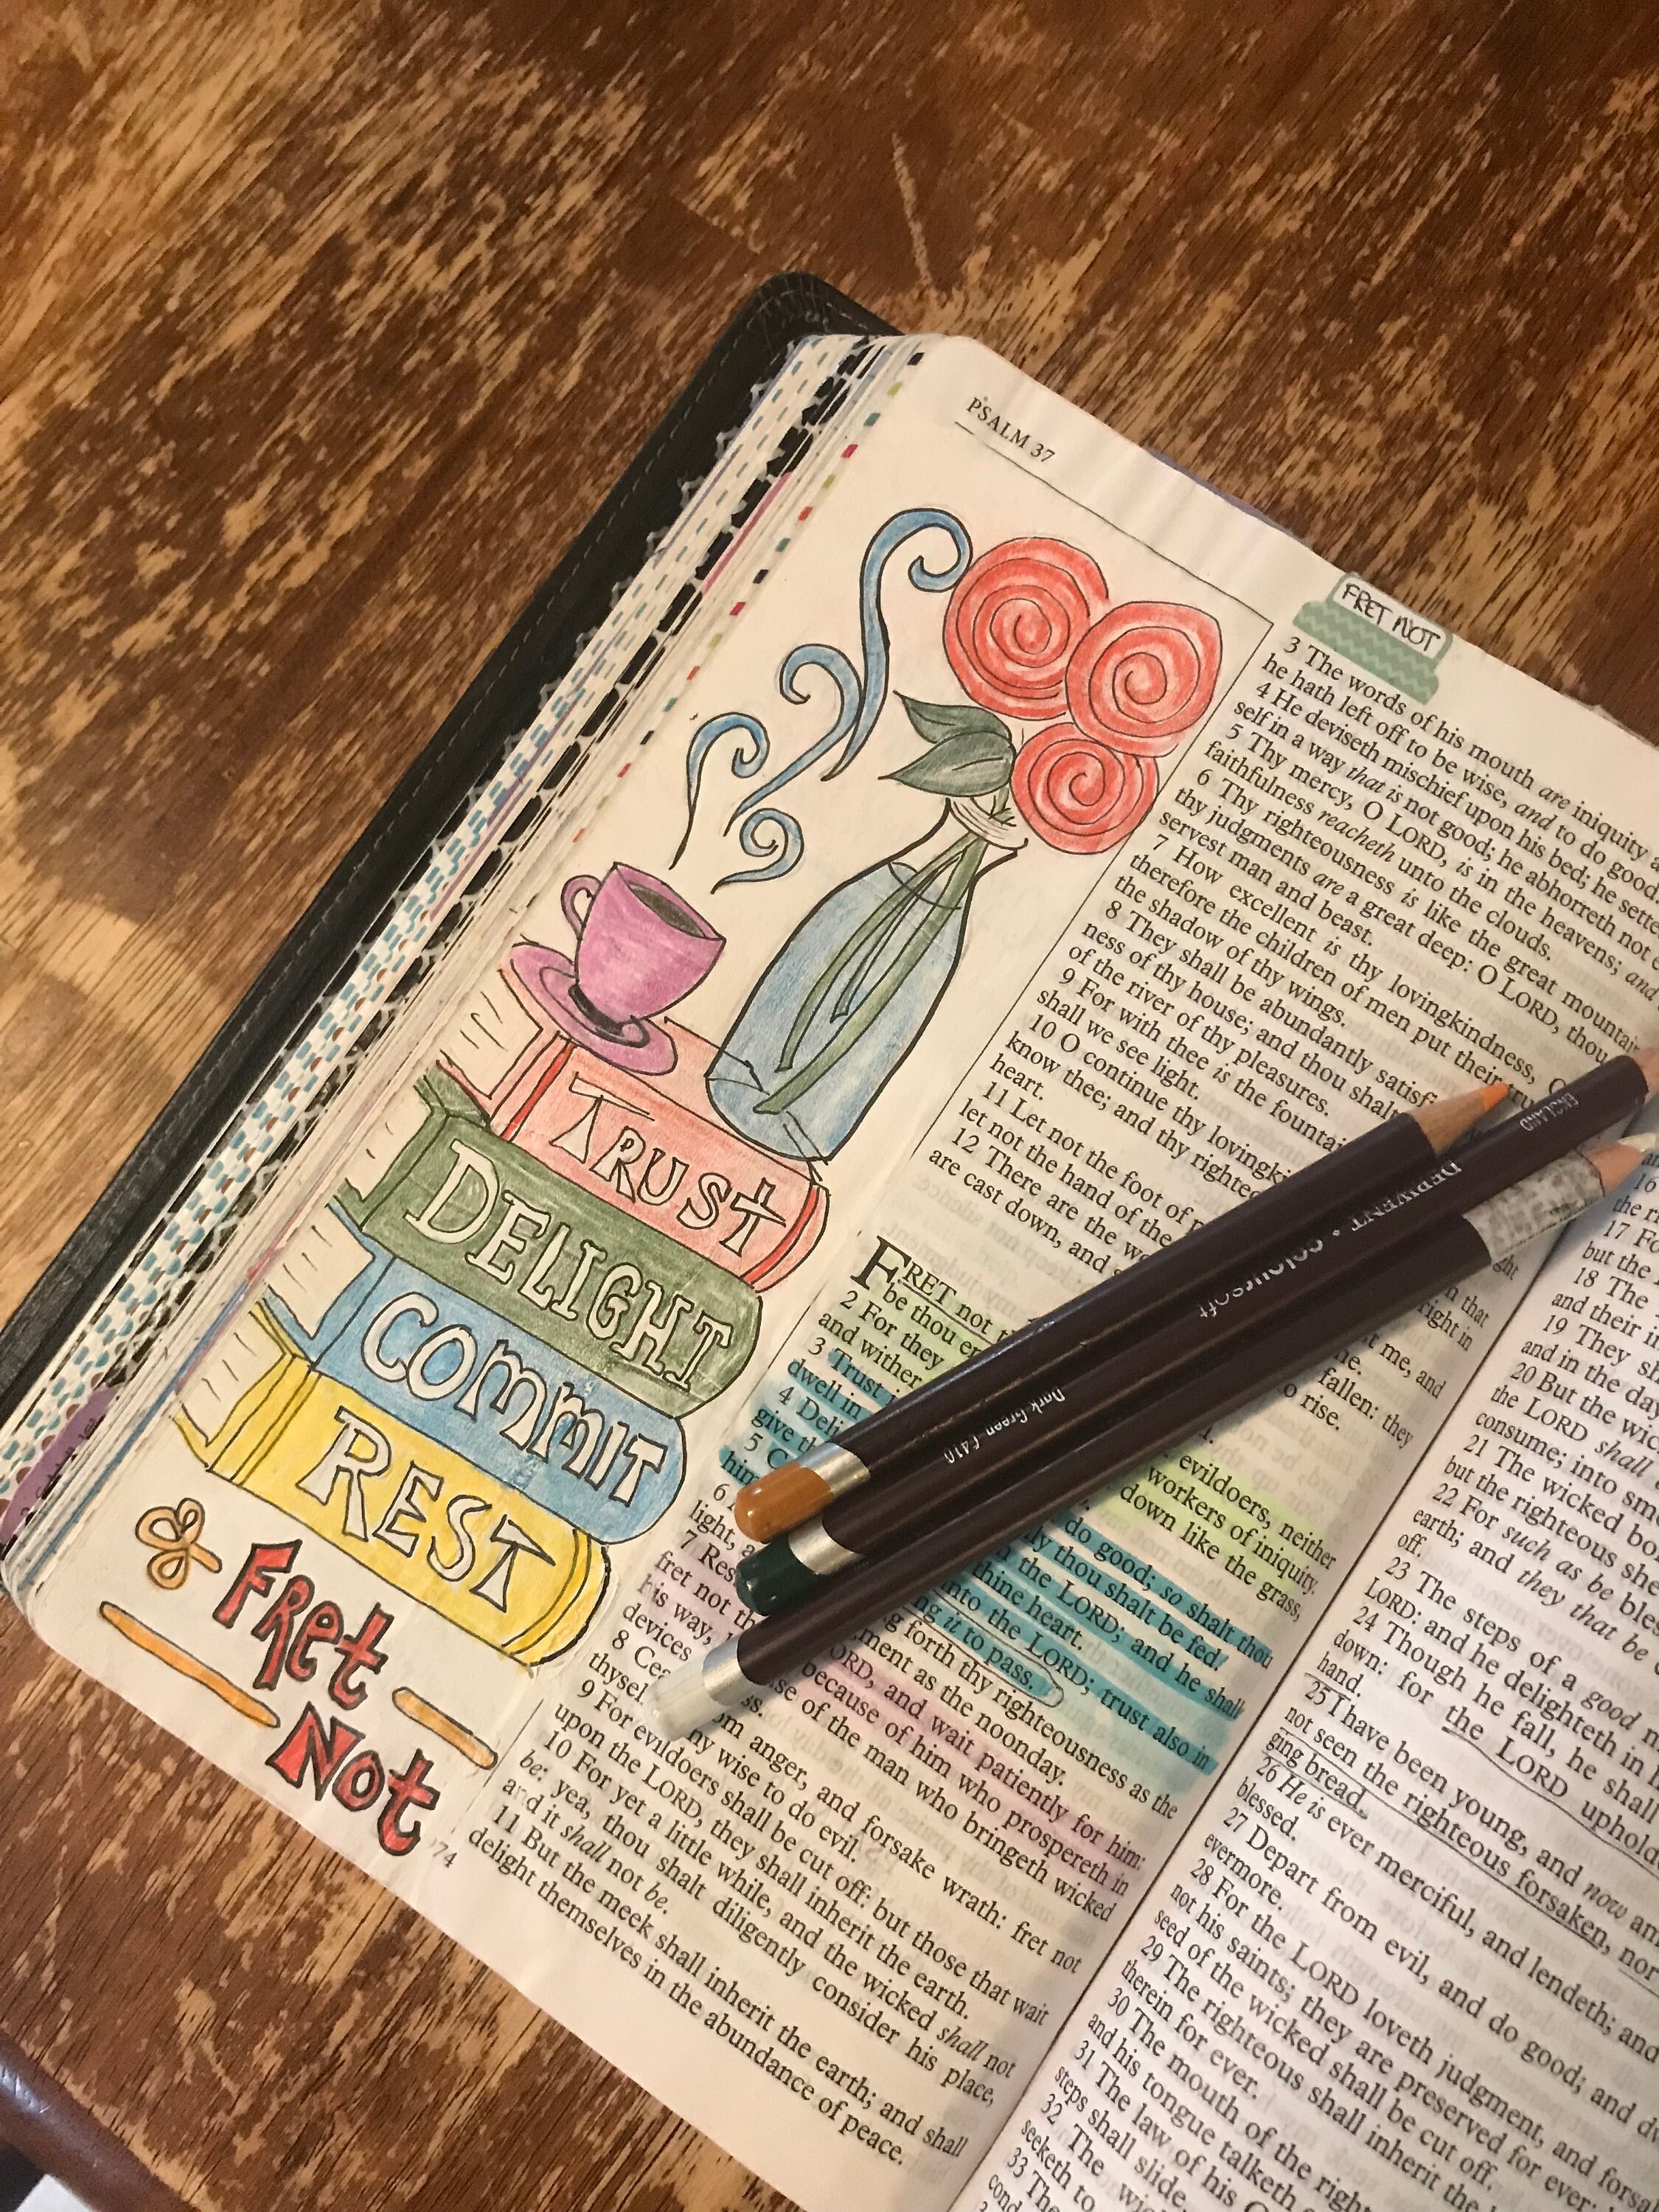 PSALM 37
FRET NOT
TRUST
DELIGHT
COMMIT
REST
Fret
Not
74
3 The words of his mouth are iniquity
he hath left off to be wise, and to do good.
4 He deviseth mischief upon his bed; he
self in a way that is not good; he abhorreth not
5 Thy mercy, O LORD, is in the heavens; and
faithfulness reacheth unto the clouds.
6 Thy righteousness is like the great
thy judgments are a great deep: O LORD, thou
servest man and beast.
7 How excellent is thy lovingkindness,
therefore the children of men put their
the shadow of thy wings.
8 They shall be abundantly
ness of thy house; and thou shalt
of the river of thy pleasures.
9 For with thee is the
shall we see light.
10 O continue thy
know thee; and thy
heart.
11 Let not the foot of
let not the hand of the
12 There are the
are cast down, and
me, and
fallen: they
rise.
FRET not evildoers, neither
be thou workers of iniquity.
2 For they down like the grass,
and wither
3 Trust do good; so shalt thou
dwell in thou shalt be fed.
4 the LORD; and he shall
give thine heart.
5 unto the LORD; trust also in
him it to pass.
6 forth thy righteousness as the
light, as the noonday.
7 LORD, and wait patiently for him:
fret not because of him who prospereth in
his way, of the man who bringeth wicked
devices
8 from anger, and forsake wrath: fret not
wise to do evil.
9 For evildoers shall be cut off: but those that wait
upon the LORD, they shall inherit the earth.
10 For yet a little while, and the wicked shall not
be: yea, thou shalt diligently consider his place,
and it shall not be.
11 But the meek shall inherit the earth; and shall
delight themselves in the abundance of peace.
DERWENT • coloursoft
Dark Green C410
ENGLAND
16
the
17
but the
18 The
and their
19 They
and in the
20 But the
the LORD shall
consume; into
21 The wicked
but the righteous
22 For such as be
earth; and they that be
off.
23 The steps of a good
LORD: and he delighteth in
24 Though he fall, he shall
down: for the LORD
hand.
25 I have been young, and now am
not seen the righteous forsaken, nor
ging bread.
26 He is ever merciful, and lendeth; and
blessed.
27 Depart from evil, and do good; and
evermore.
28 For the LORD loveth judgment, and
not his saints; they are preserved for
seed of the wicked shall be cut off.
29 The righteous shall inherit the
therein for ever.
30 The mouth of the
and his tongue talketh
31 The law of his
steps shall slide.
32 The
seeketh to
33 The